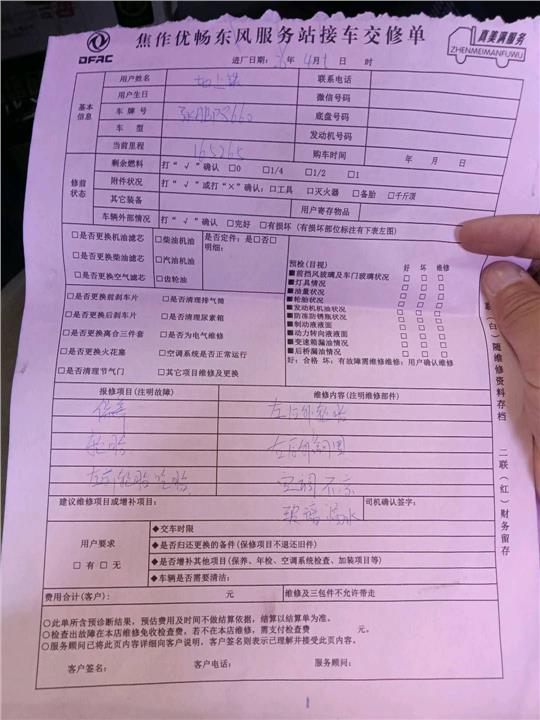 DFAC
焦作优畅东风服务站接车交修单
真美满服务
ZHENMEIMANFUWU
进厂日期：26年 4月1日 时
基本信息
用户姓名 地上铁 联系电话
用户生日 微信号码
车牌号 底盘号码
车型 发动机号码
当前里程 165265 购车时间 年 月 日
修前状态
剩余燃料 打“√”确认 □0 □1/4 □1/2 □1
附件状况 打“√”或打“×”确认：□工具 □灭火器 □备胎 □千斤顶
其它装备 用户寄存物品
车辆外部情况 打“√”确认 □完好 □有损坏（有损坏部位标注有下表左图）
□是否更换机油滤芯 □柴油机油 是否定件：是□否□
□是否更换柴油滤芯 □汽油机油 明细：
□是否更换空气滤芯 □齿轮油
□是否更换前刹车片 □是否清理排气筒
□是否更换后刹车片 □是否清理尿素箱
□是否更换离合三件套 □是否为电气维修
□是否更换火花塞 □空调系统是否正常运行
□是否清理节气门 □其它项目维修及更换
预检(目视) 好 坏 维修
■前挡风玻璃及车门玻璃状况 □ □ □
■灯具情况 □ □ □
■油量状况 □ □ □
■轮胎状况 □ □ □
■发动机机油状况 □ □ □
■防冻防锈瓶状况 □ □ □
■制动液液面 □ □ □
■动力转向液液面 □ □ □
■变速箱漏油情况 □ □ □
■后桥漏油情况 □ □ □
好：合格 坏：有故障需维修维修：用户确认维修
报修项目(注明故障) 维修内容(注明维修部件)
保养 左后外轮胎
轮胎 左后外钢圈
左前轮胎吃胎 空调不凉
建议维修项目或增补项目： 玻璃漏水 司机确认签字：
用户要求
□有 □无
◆交车时限
◆是否归还更换的备件(保修项目不退还旧件)
◆是否增补其他项目(保养、年检、空调系统检查、加装项目等)
◆车辆是否需要清洁：
费用合计(客户)： 元 维修及三包件不允许带走
○此单所含预诊断结果，预估费用及时间不做结算依据，结算以结算单为准。
○检查出故障在本店维修免收检查费，若不在本店维修，需支付检查费 元。
○服务顾问已将此页内容详细向客户说明，客户签名则表示已理解并接受此页内容。
客户签名： 客户电话： 服务顾问：
（白）随维修资料存档 二联（红）财务留存